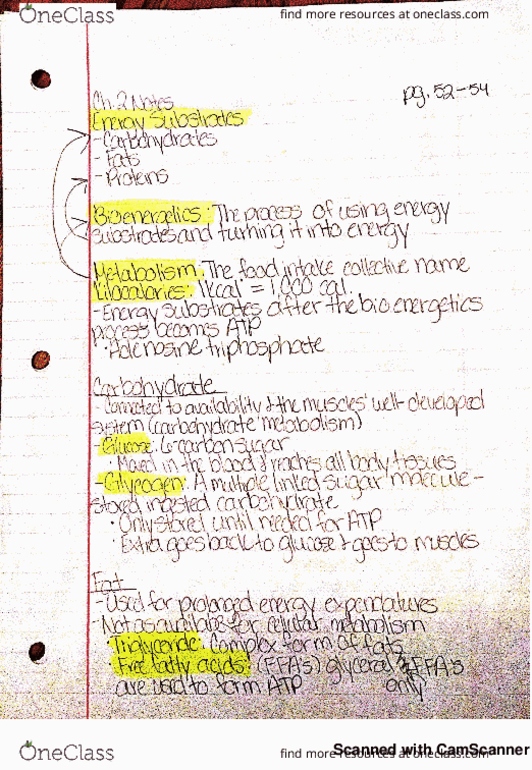 OneClass
find more resources at oneclass.com
pg. 52-54
Ch. 2 Notes
Energy Substrates
- Carbohydrates
- Fats
- Proteins
Bioenergetics: The process of using energy
substrates and turning it into energy
Metabolism: The food intake collective name
Kilocalories: 1kcal = 1,000 cal.
- Energy substrates after the bioenergetics
process becomes ATP
· Adenosine triphosphate
Carbohydrate
- Connected to availability & the muscles' well-developed
system (carbohydrate metabolism)
- Glucose: 6-carbon sugar
· Moved in the blood & reaches all body tissues
- Glycogen: A multiple linked sugar molecule -
stored ingested carbohydrate
· Only stored until needed for ATP
· Extra goes back to glucose & goes to muscles
Fat
- Used for prolonged energy expendatures
- Not as available for cellular metabolism
· Triglyceride: Complex form of fats
· Free fatty acids: (FFA's) glycerol FFA's
are used to form ATP only
OneClass
find more resources at oneclass.com
Scanned with CamScanner